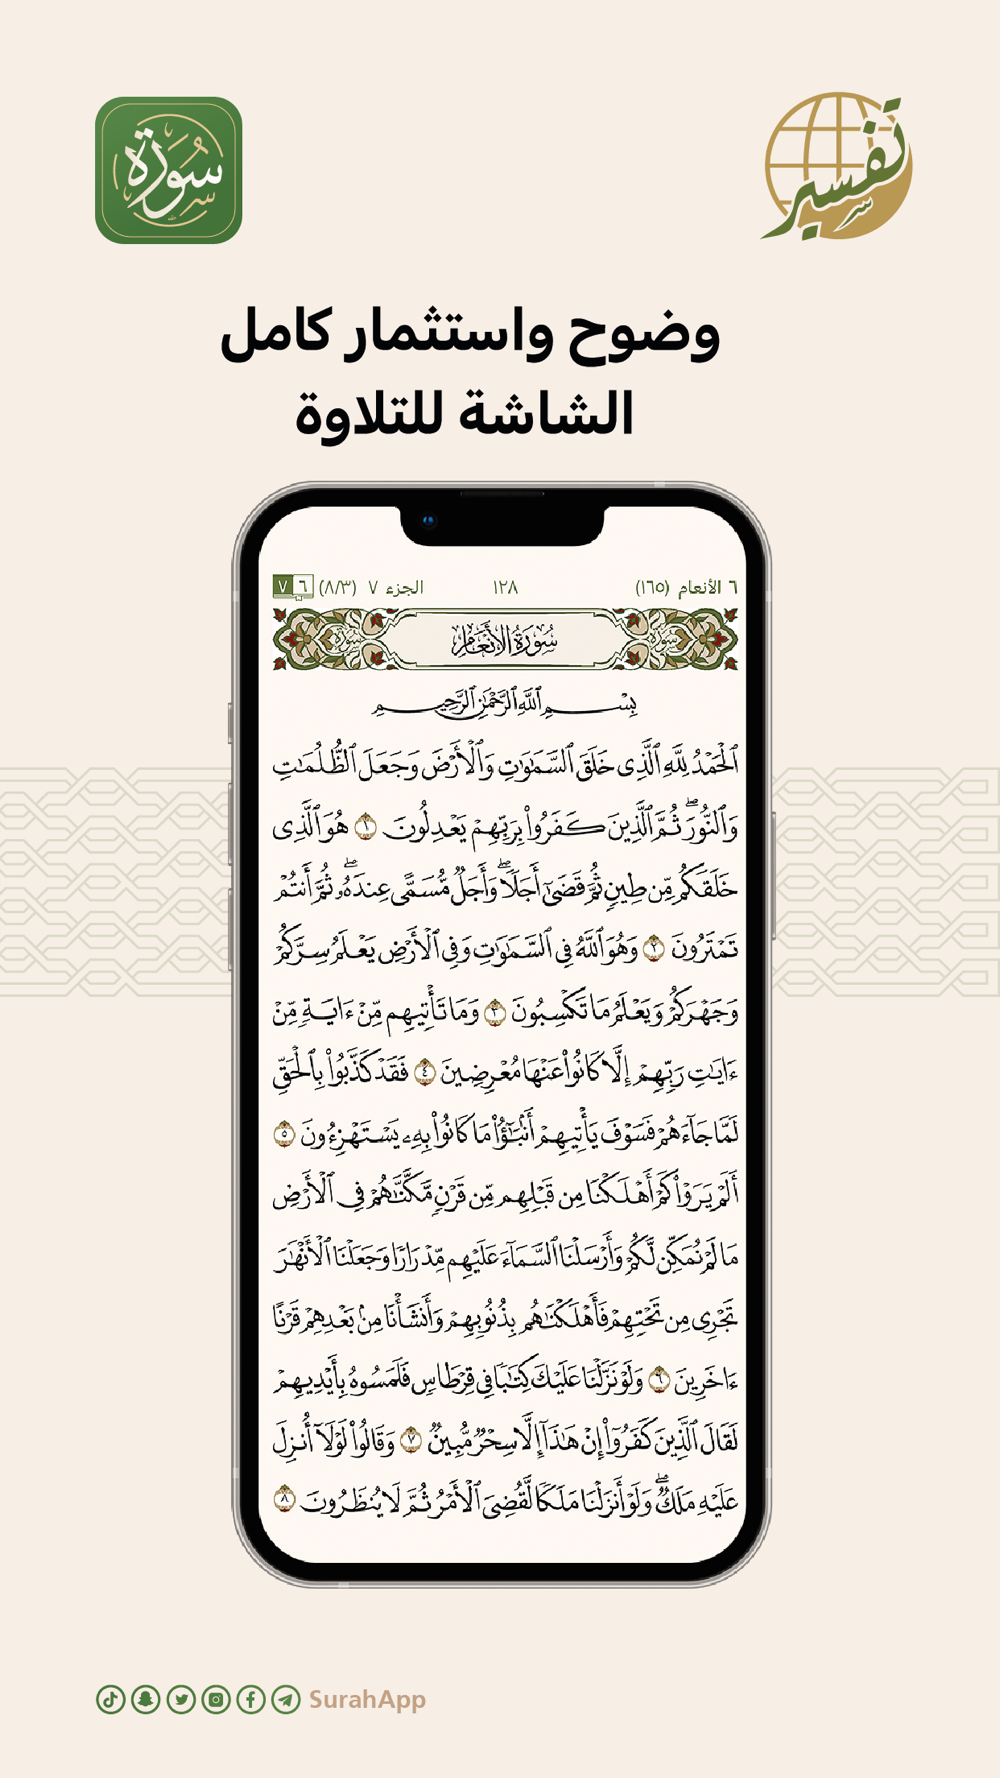 سورة
تفسير
وضوح واستثمار كامل
الشاشة للتلاوة
٦ الأنعام (١٦٥) ١٢٨ الجزء ٧ (٨/٣) ٦ ٧
سُورَةُ الأَنْعَامِ
بِسْمِ ٱللَّهِ ٱلرَّحْمَٰنِ ٱلرَّحِيمِ
ٱلْحَمْدُ لِلَّهِ ٱلَّذِى خَلَقَ ٱلسَّمَٰوَٰتِ وَٱلْأَرْضَ وَجَعَلَ ٱلظُّلُمَٰتِ
وَٱلنُّورَۖ ثُمَّ ٱلَّذِينَ كَفَرُوا۟ بِرَبِّهِمْ يَعْدِلُونَ ١ هُوَ ٱلَّذِى
خَلَقَكُم مِّن طِينٍ ثُمَّ قَضَىٰٓ أَجَلًاۖ وَأَجَلٌ مُّسَمًّى عِندَهُۥۖ ثُمَّ أَنتُمْ
تَمْتَرُونَ ٢ وَهُوَ ٱللَّهُ فِى ٱلسَّمَٰوَٰتِ وَفِى ٱلْأَرْضِ يَعْلَمُ سِرَّكُمْ
وَجَهْرَكُمْ وَيَعْلَمُ مَا تَكْسِبُونَ ٣ وَمَا تَأْتِيهِم مِّنْ ءَايَةٍ مِّنْ
ءَايَٰتِ رَبِّهِمْ إِلَّا كَانُوا۟ عَنْهَا مُعْرِضِينَ ٤ فَقَدْ كَذَّبُوا۟ بِٱلْحَقِّ
لَمَّا جَآءَهُمْ فَسَوْفَ يَأْتِيهِمْ أَنۢبَٰٓؤُا۟ مَا كَانُوا۟ بِهِۦ يَسْتَهْزِءُونَ ٥
أَلَمْ يَرَوْا۟ كَمْ أَهْلَكْنَا مِن قَبْلِهِم مِّن قَرْنٍ مَّكَّنَّٰهُمْ فِى ٱلْأَرْضِ
مَا لَمْ نُمَكِّن لَّكُمْ وَأَرْسَلْنَا ٱلسَّمَآءَ عَلَيْهِم مِّدْرَارًا وَجَعَلْنَا ٱلْأَنْهَٰرَ
تَجْرِى مِن تَحْتِهِمْ فَأَهْلَكْنَٰهُم بِذُنُوبِهِمْ وَأَنشَأْنَا مِنۢ بَعْدِهِمْ قَرْنًا
ءَاخَرِينَ ٦ وَلَوْ نَزَّلْنَا عَلَيْكَ كِتَٰبًا فِى قِرْطَاسٍ فَلَمَسُوهُ بِأَيْدِيهِمْ
لَقَالَ ٱلَّذِينَ كَفَرُوٓا۟ إِنْ هَٰذَآ إِلَّا سِحْرٌ مُّبِينٌ ٧ وَقَالُوا۟ لَوْلَآ أُنزِلَ
عَلَيْهِ مَلَكٌۖ وَلَوْ أَنزَلْنَا مَلَكًا لَّقُضِىَ ٱلْأَمْرُ ثُمَّ لَا يُنظَرُونَ ٨
SurahApp